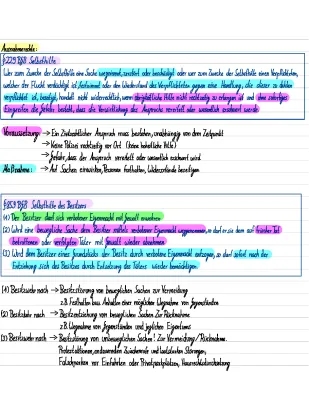 Ausnahmerechte:
§229 BGB Selbsthilfe
Wer zum Zwecke der Selbsthilfe eine Sache wegnimmt, zerstört oder beschädigt oder wer zum Zwecke der Selbsthilfe einen Verpflichteten,
welcher der Flucht verdächtig ist, festnimmt oder den Widerstand des Verpflichteten gegen eine Handlung, die dieser zu dulden
verpflichtet ist, beseitigt, handelt nicht widerrechtlich, wenn obrigkeitliche Hilfe nicht rechtzeitig zu erlangen ist und ohne sofortiges
Eingreifen die Gefahr besteht, dass die Verwirklichung des Anspruchs vereitelt oder wesentlich erschwert werde.
Voraussetzung: → Ein Zivilrechtlicher Anspruch muss bestehen, unabhängig von dem Zeitpunkt
→ Keine Polizei rechtzeitig vor Ort (keine hoheitliche Hilfe)
→ Gefahr, dass der Anspruch vereitelt oder wesentlich erschwert wird
Maßnahme: → Auf Sachen einwirken, Personen festhalten, Widerstände beseitigen
§859 BGB Selbsthilfe des Besitzers
(1) Der Besitzer darf sich verbotener Eigenmacht mit Gewalt erwehren
(2) Wird eine bewegliche Sache dem Besitzer mittels verbotener Eigenmacht weggenommen, so darf er sie dem auf frischer Tat
betroffenen oder verfolgten Täter mit Gewalt wieder abnehmen
(3) Wird dem Besitzer eines Grundstücks der Besitz durch verbotene Eigenmacht entzogen, so darf er sofort nach der
Entziehung sich des Besitzes durch Entsetzung des Täters wieder bemächtigen
(1) Besitzwehr nach → Besitzstörung von beweglichen Sachen zur Vermeidung
z.B. Festhalten bzw. Anhalten einer möglichen Wegnahme von Gegenständen
(2) Besitzkehr nach → Besitzentziehung von beweglichen Sachen Zur Rücknahme
z.B. Wegnahme von Gegenständen und jeglichen Eigentums
(3) Besitzwehr nach → Besitzstörung von unbeweglichen Sachen! Zur Vermeidung / Rücknahme.
Protestaktionen, andauernden Zwischenrufe und lautstarken Störungen,
Falschparken vor Einfahrten oder Privatparkplätzen,